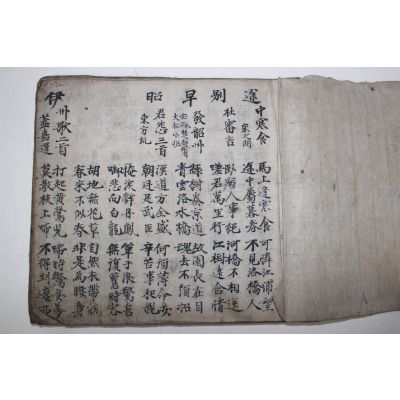 途中寒食
宋之問
馬上逢寒食 可憐江浦望
途中屬暮春 不見洛橋人
別杜審言
臥病人事絕 河橋不相送
嗟君萬里行 江樹遠含情
早發韶州
綠樹秦京道 故園長在目
青雲洛水橋 魂去不須招
昭君怨三首
東方虬
漢道方全盛 何須薄命妾
朝廷足武臣 辛苦事和親
掩淚辭丹鳳 單于浪驚喜
啣悲向白龍 無復舊時容
胡地無花草 自然衣帶緩
春來不似春 非是爲腰身
伊州歌二首
蓋嘉運
打起黃鶯兒 啼時驚妾夢
莫敎枝上啼 不得到遼西